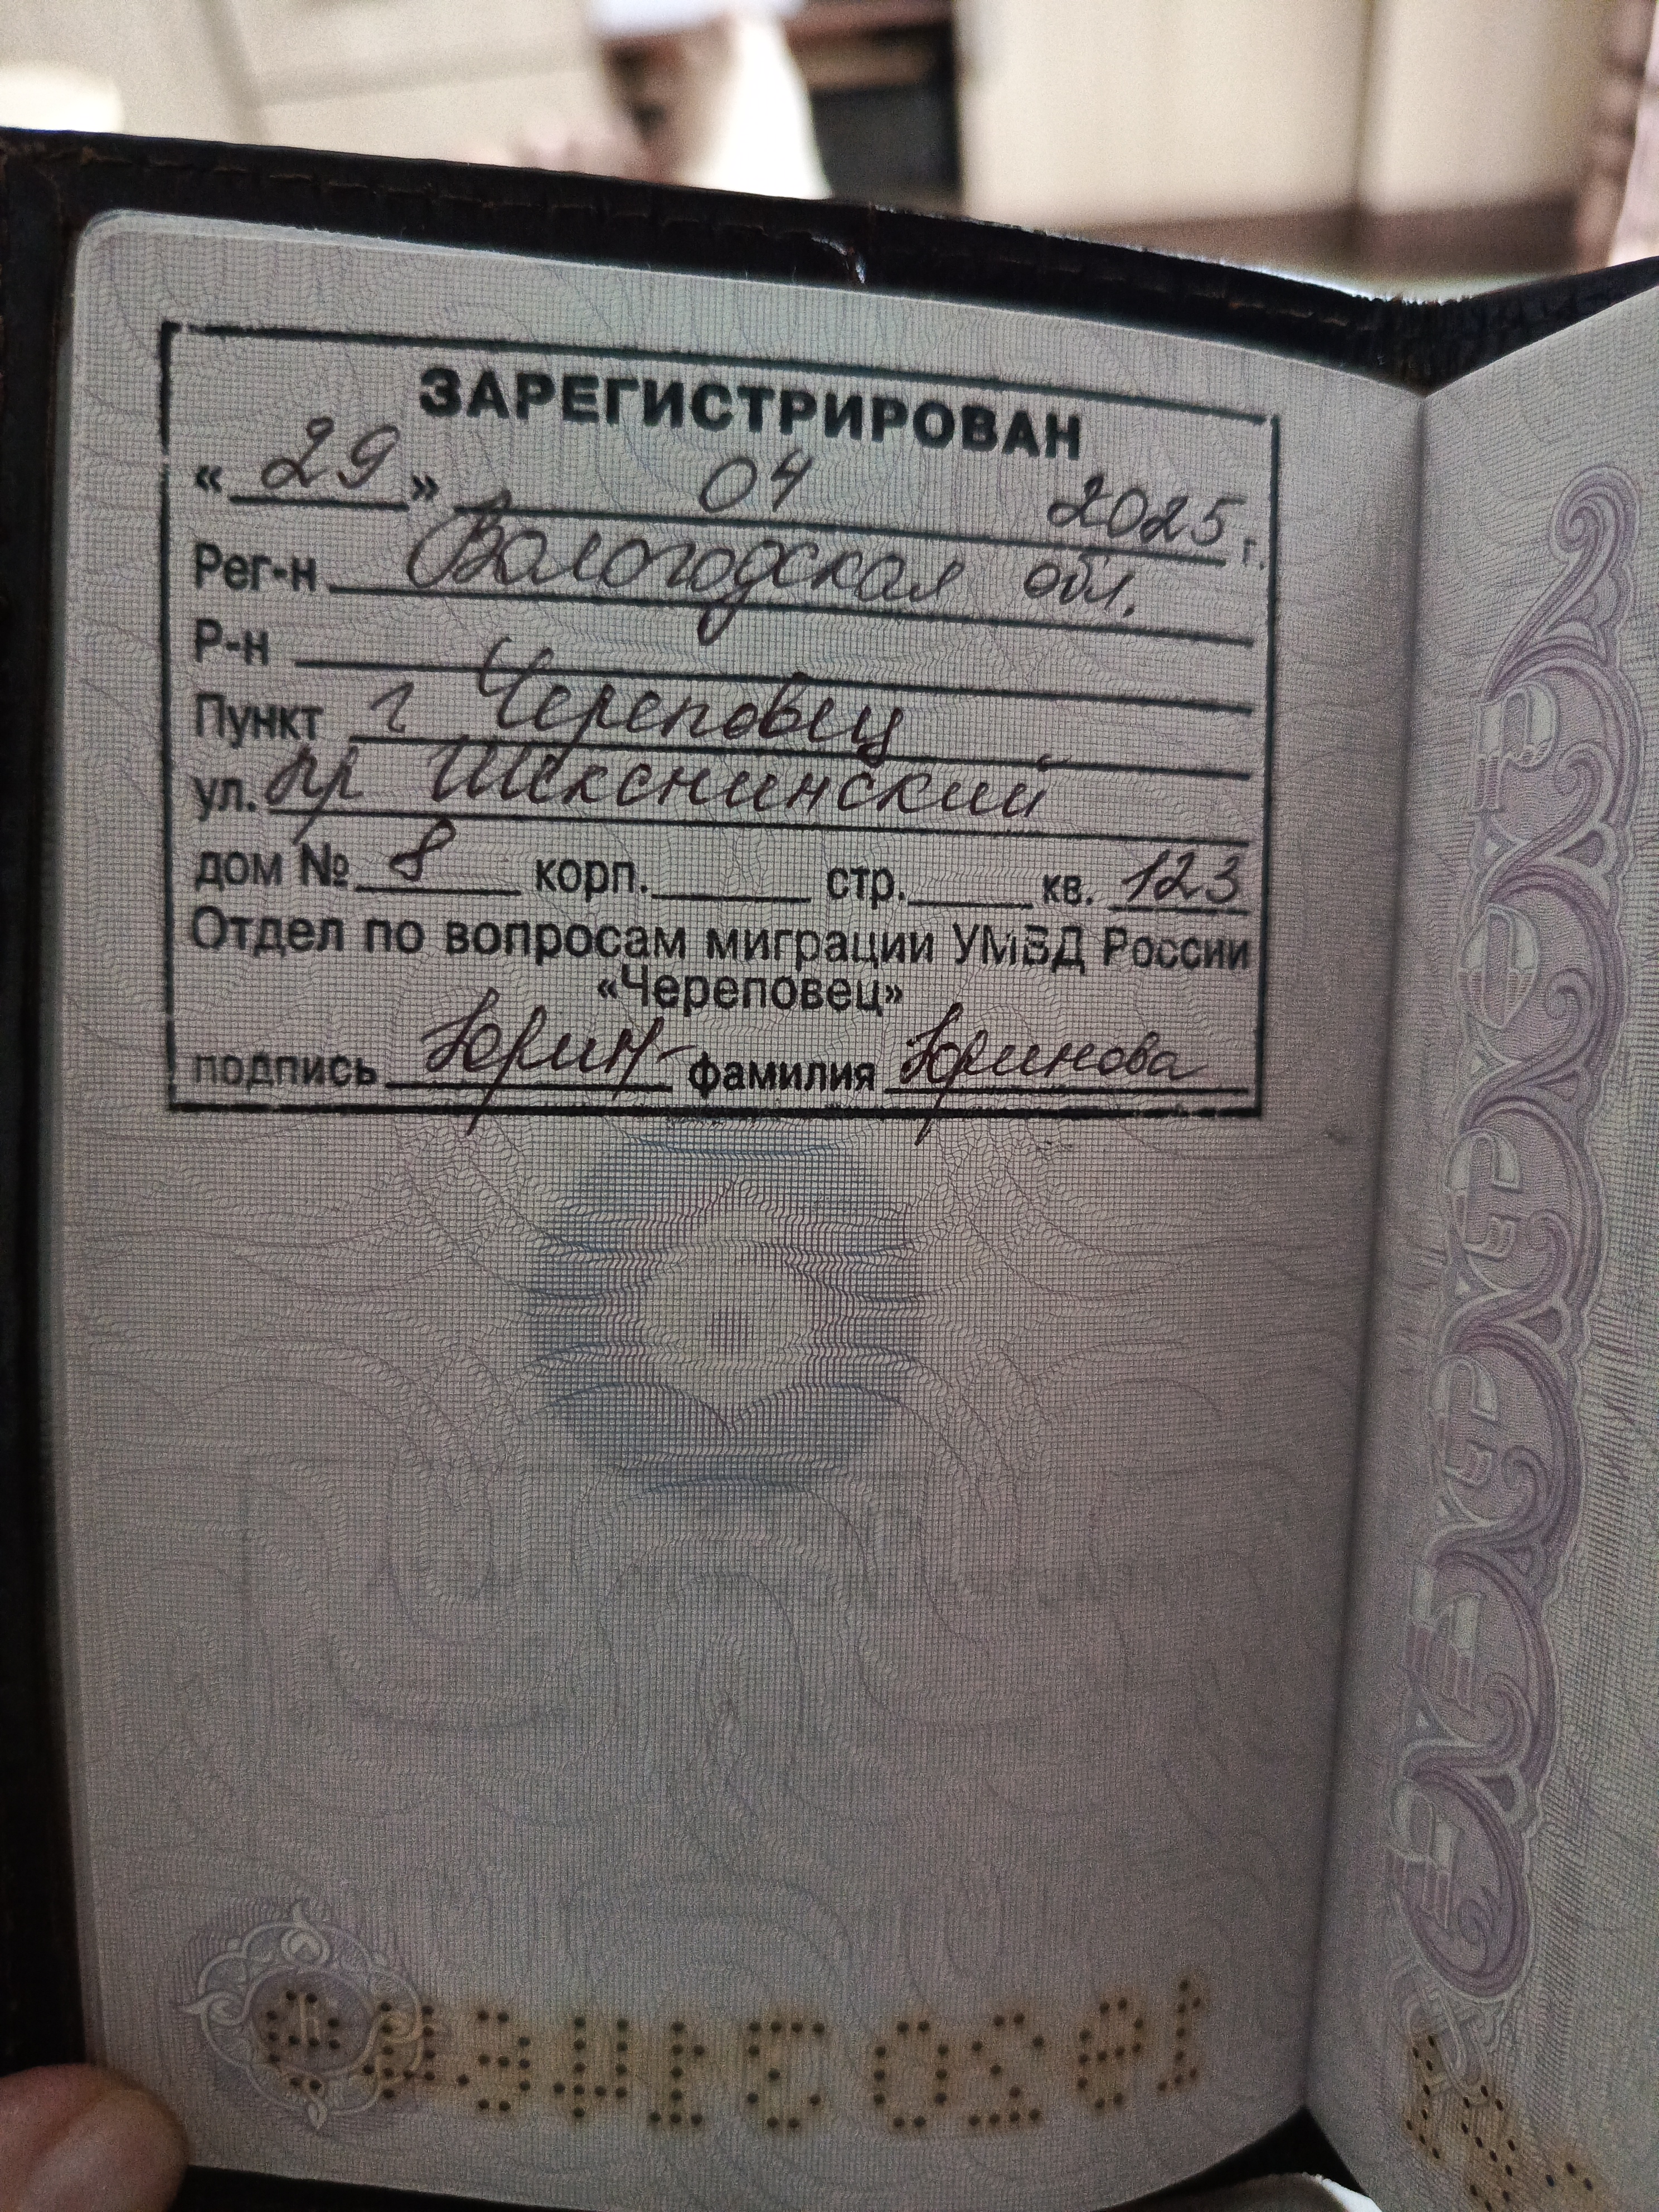 ЗАРЕГИСТРИРОВАН
« 29 » 04 2025 г.
Рег-н Вологодская обл.
Р-н
Пункт г Череповец
ул. пр Шекснинский
дом № 8 корп. стр. кв. 123
Отдел по вопросам миграции УМВД России
«Череповец»
подпись Юрин фамилия Юринова